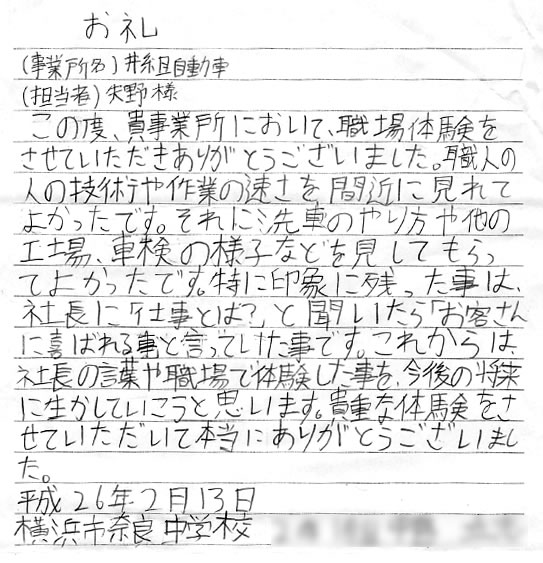 お礼
(事業所名)井組自動車
(担当者)矢野様
この度、貴事業所において、職場体験を
させていただきありがとうございました。職人の
人の技術や作業の速さを間近に見れて
よかったです。それに洗車のやり方や他の
工場、車検の様子などを見してもらっ
てよかったです。特に印象に残った事は、
社長に「仕事とは?」と聞いたら「お客さん
に喜ばれる事と言っていた事です。これからは、
社長の言葉や職場で体験した事を、今後の将来
に生かしていこうと思います。貴重な体験をさ
せていただいて本当にありがとうございまし
た。
平成26年2月13日
横浜市奈良中学校